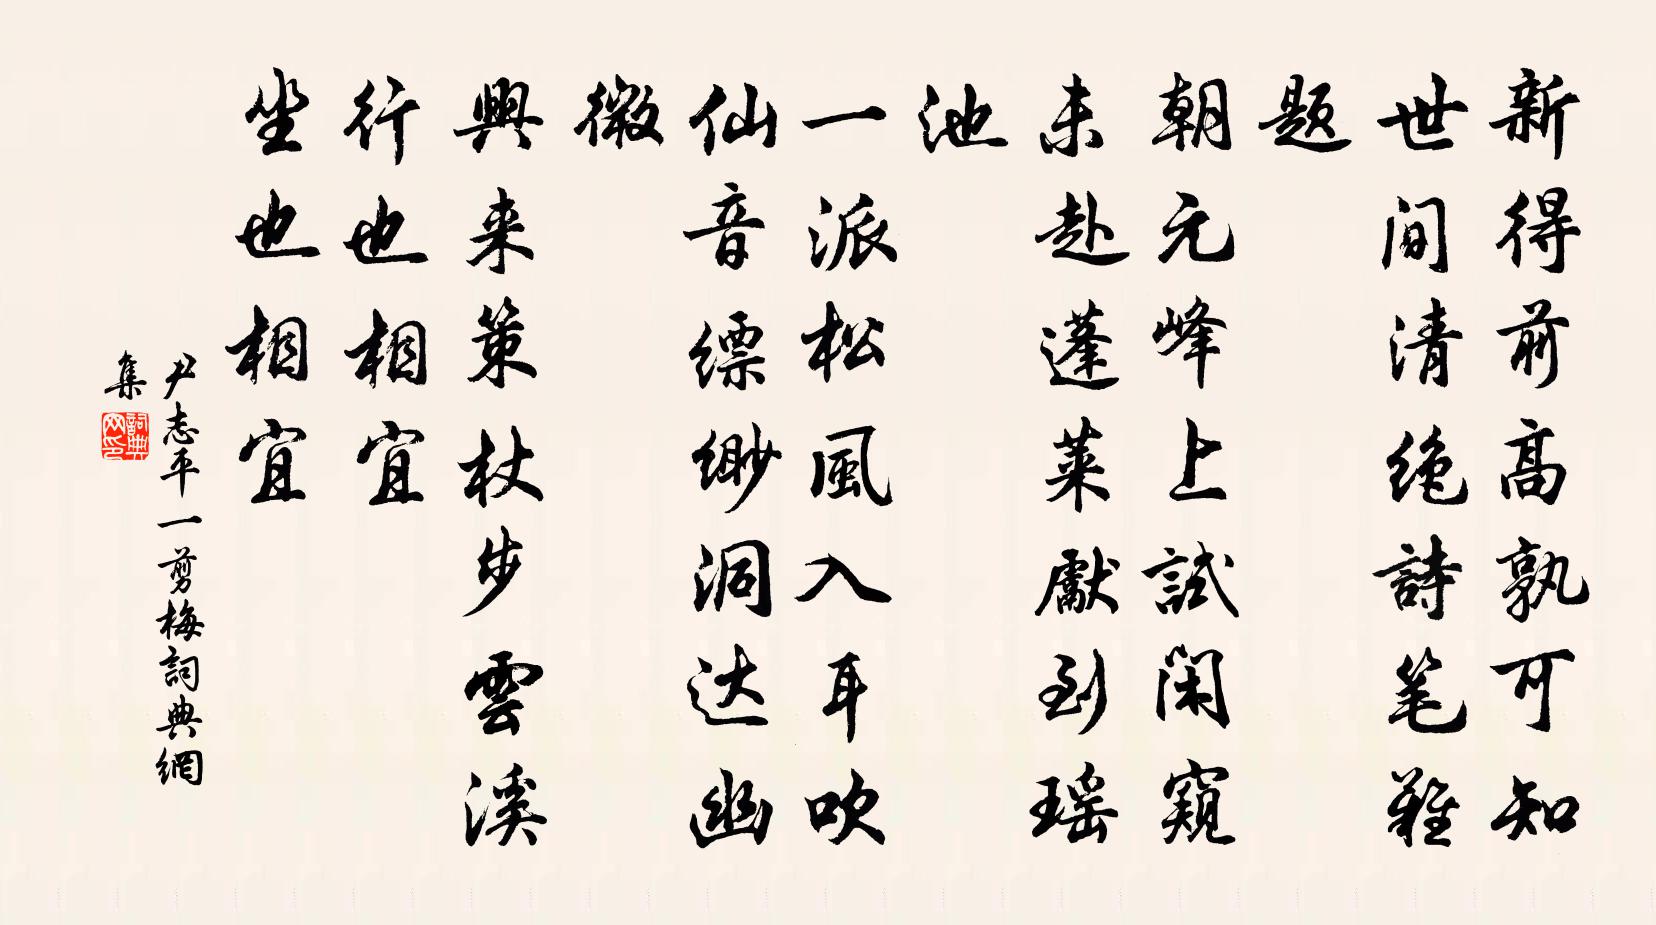 新得前高孰可知
世间清绝詩笔難
题
朝元峰上試闲窺
未赴蓬莱獻到瑶
池
一派松風入耳吹
仙音缥缈洞达幽
微
興来策杖步雲溪
行也相宜
坐也相宜
尹志平一剪梅詞典網
集
詞典
网印